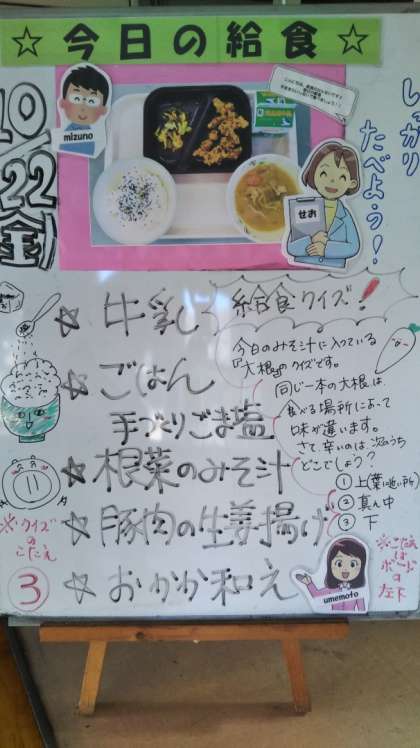 ☆ 今日の給食 ☆
10/22
金
しっかり
たべよう!
mizuno
せお
☆ 牛乳
☆ ごはん
手づくりごま塩
☆ 根菜のみそ汁
☆ 豚肉の生姜揚げ
☆ おかか和え
給食クイズ!
今日のみそ汁に入っている
『大根』クイズです。
同じ一本の大根は、
食べる場所によって
味が違います。
さて、辛いのは次のうち
どこでしょう?
① 上(葉に近い所)
② 真ん中
③ 下
※クイズ
の
こたえ
③
※こたえ
は
ボード
の
左下
umemoto